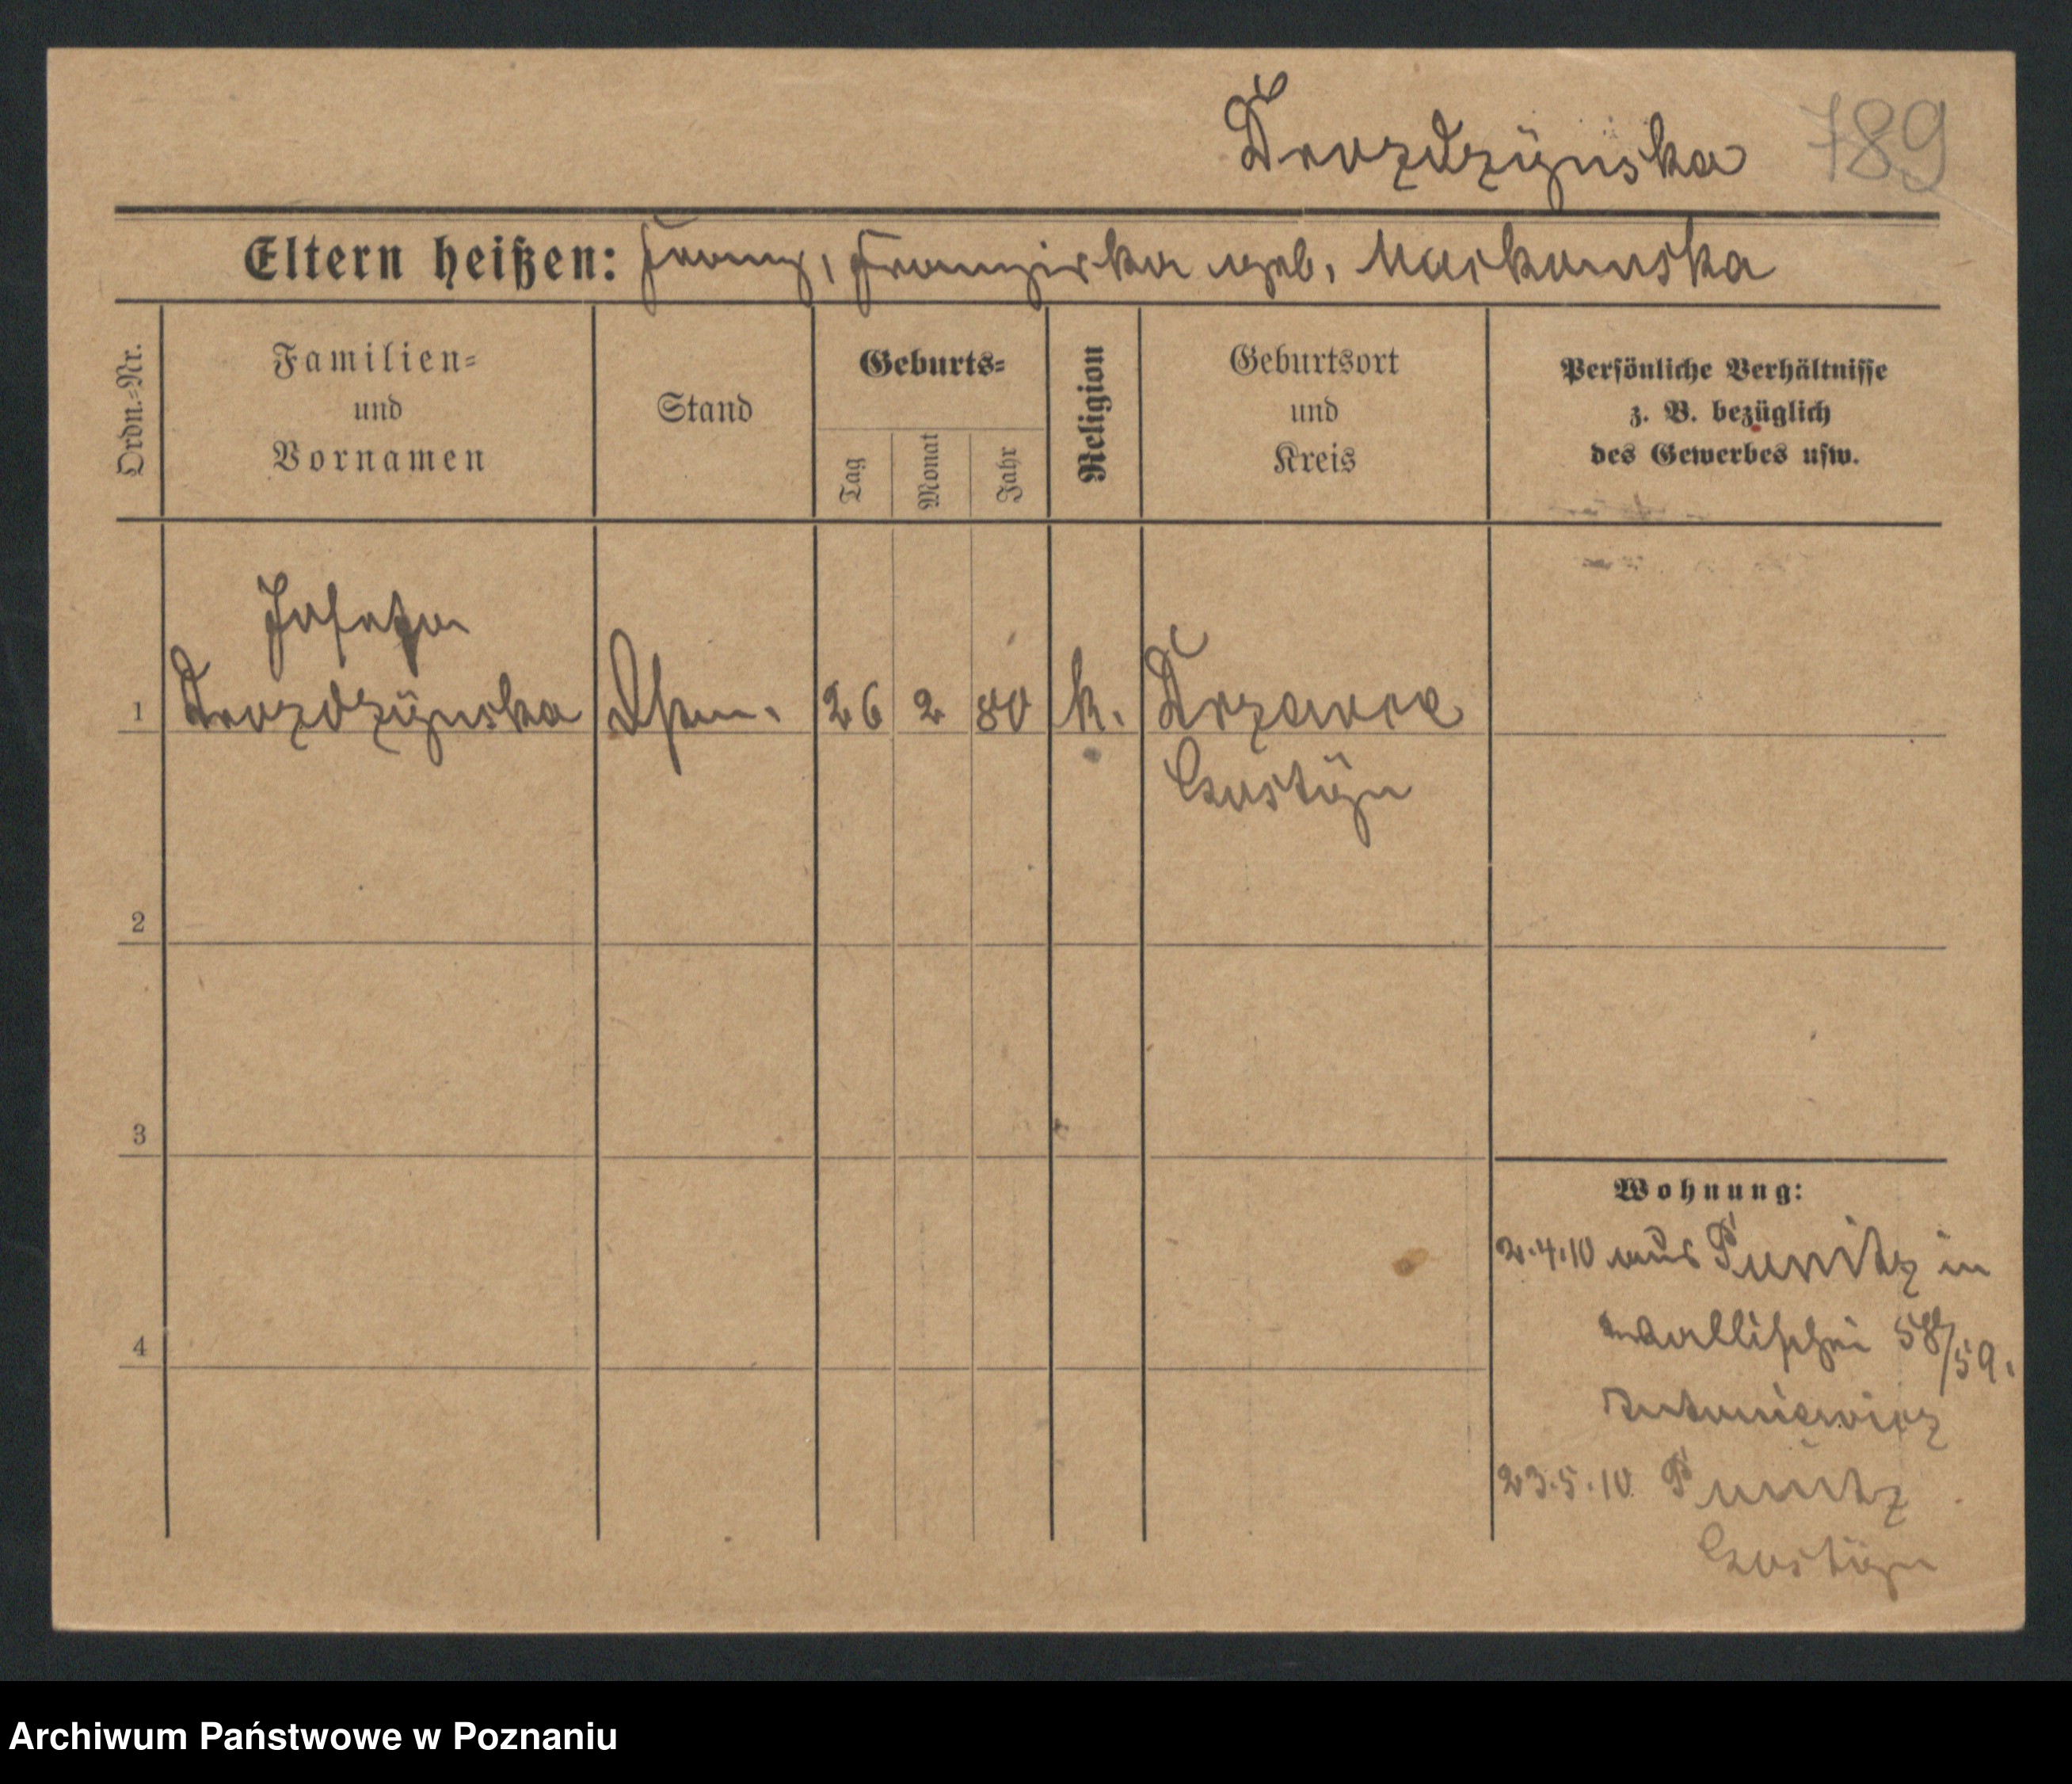 Drozdzÿnska 789
Eltern heißen: Franz, Franziska geb. Maskowska
Ordn.-Nr.
Familien-
und
Vornamen
Stand
Geburts-
Tag
Monat
Jahr
Religion
Geburtsort
und
Kreis
Persönliche Verhältnisse
z. B. bezüglich
des Gewerbes usw.
Josefa
1 Drozdzÿnska 26 2 80 k. Drzewce
Gostÿn
2
3
4
Wohnung:
2.4.10 aus Punitz in
Wallischei 58/59.
Antoniewicz
23.5.10 Punitz
Gostÿn
Archiwum Państwowe w Poznaniu